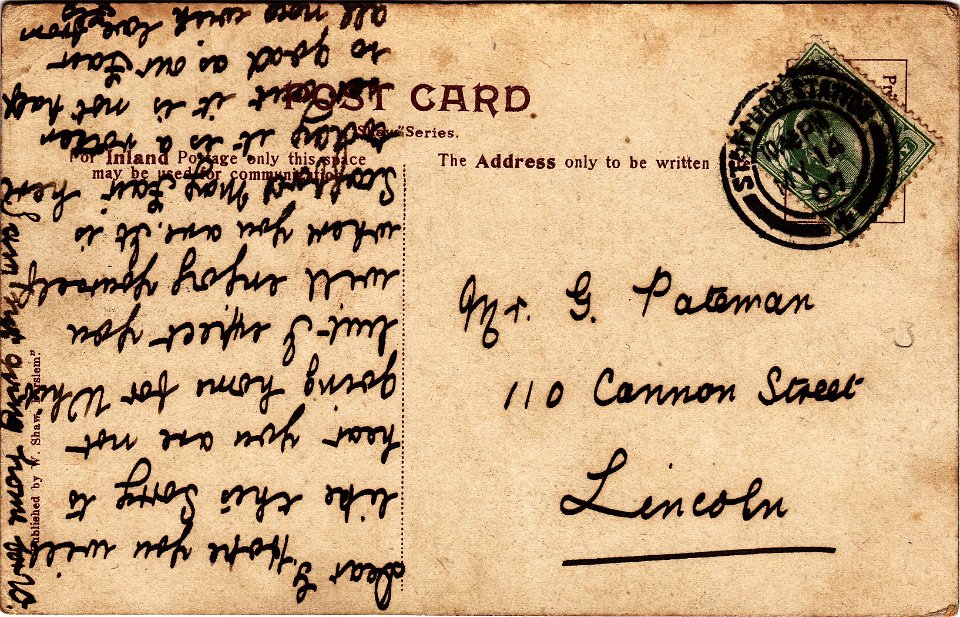 POST CARD
"Shaw" Series.
For Inland Postage only this space
may be used for communication
The Address only to be written
STAMFORD STATION
MY 14
07
Mr. G. Pateman
110 Cannon Street
Lincoln
Published by W. Shaw, Burslem."
Dear G
Hope you will
like this Sorry to
hear you are not
going home for Whit
but I expect you
will enjoy yourself
where you are. It is
May Fair here
today it is a rotten
but it is not half
so good as our Fair
all now with love from
I am not going home for W